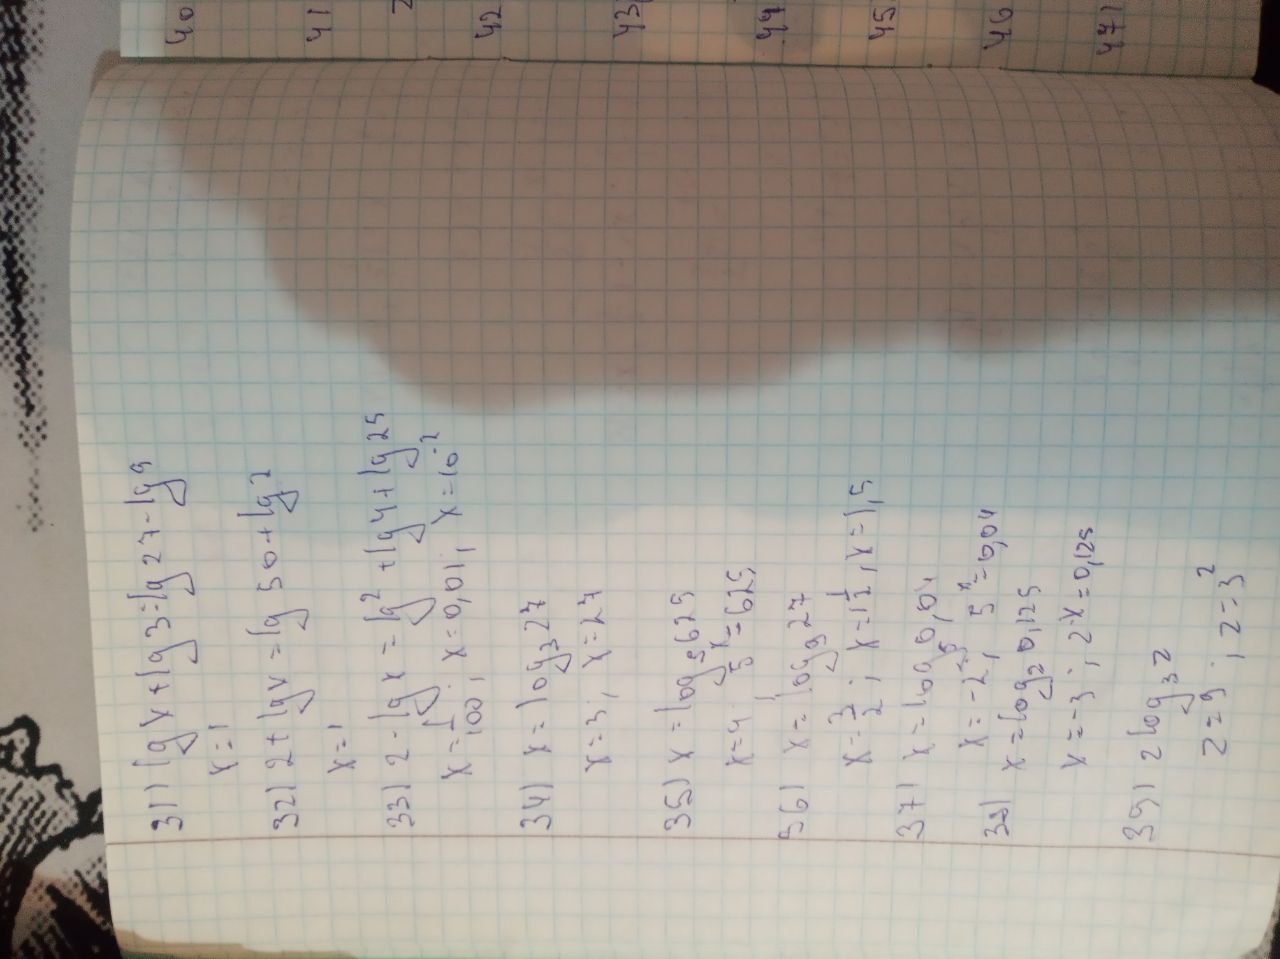 31) lg x + lg 3 = lg 27 - lg 9
x = 1
32) 2 + lg x = lg 50 + lg 2
x = 1
33) 2 - lg x = lg² + lg 4 + lg 25
x = 1/100; x = 0,01; x = 10⁻²
34) x = log₃ 27
x = 3; x = 27
35) x = log₅ 625
x = 4; 5ˣ = 625
36) x = log₉ 27
x = 3/2; x = 1 1/2, x = 1,5
37) x = log₅ 0,04
x = -2; 5ˣ = 0,04
38) x = log₂ 0,125
x = -3; 2⁻ˣ = 0,125
39) 2 log₃ z
z = 9; z = 3²
40
41
42
43)
44
45
46
47)